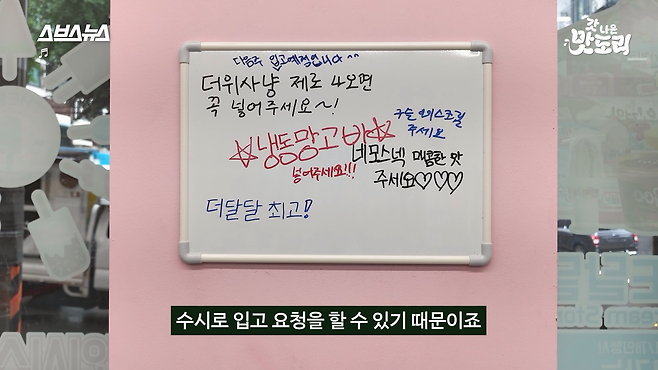 스브스뉴스
갓 나온
맛도리
다음주 입고예정입니다^^
더위사냥 제로 나오면
꼭 넣어주세요~!
구슬 아이스크림
주세요
☆냉동망고바☆
넣어주세요!!!
네모스넥 매콤한 맛
주세요♡♡♡
더달달 최고!
수시로 입고 요청을 할 수 있기 때문이죠